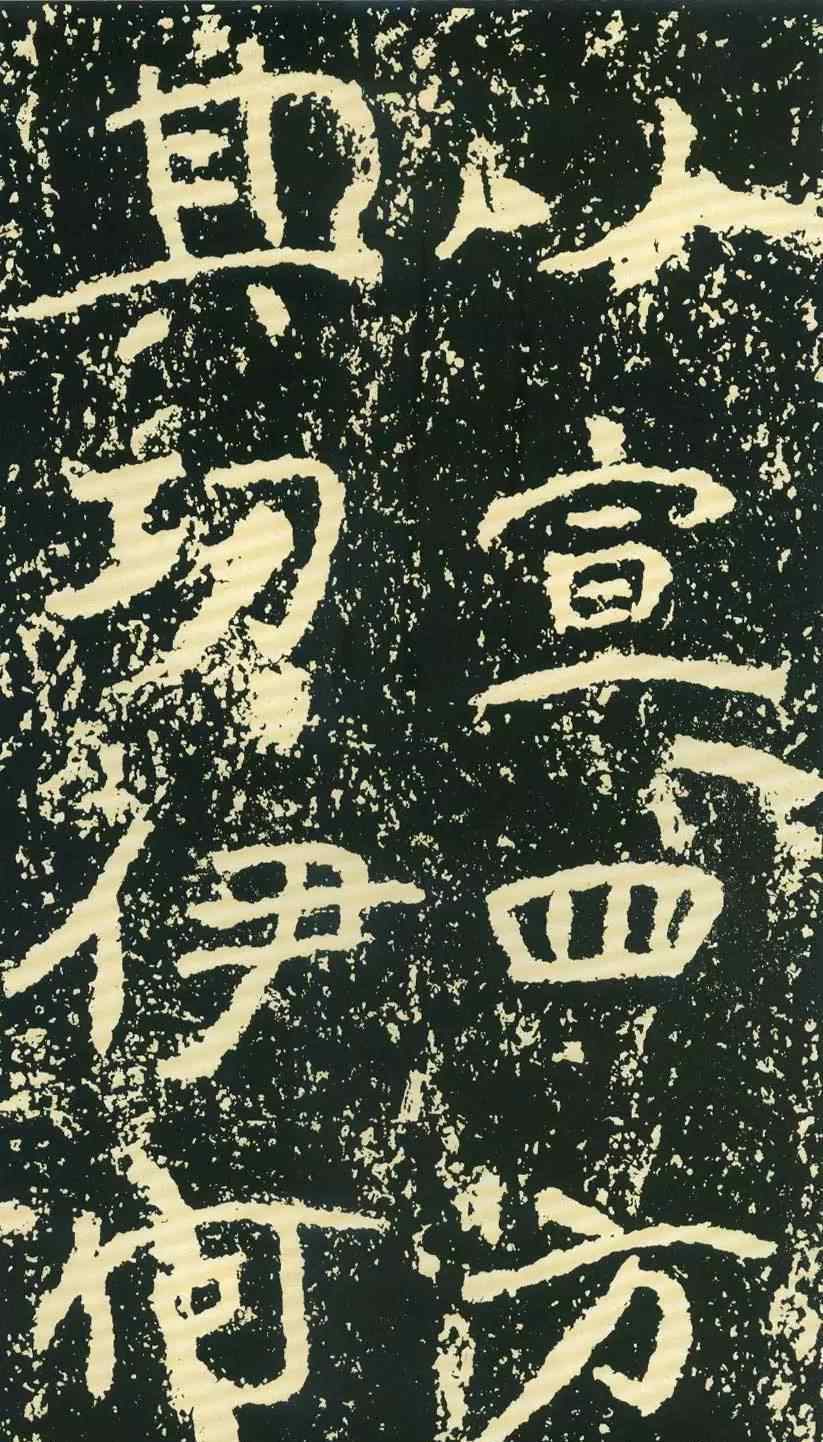 以宣四方
其功伊何